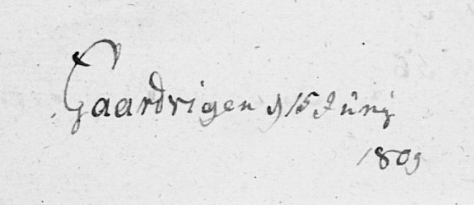 Gaardvigen d 15 Junÿ
1809